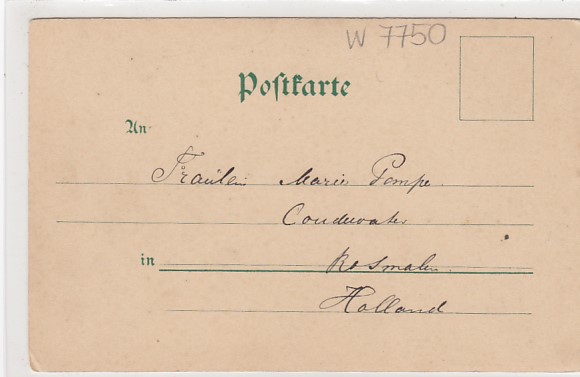 W 7750
Postkarte
An
Fräulein Marie Pompe.
Coudewater
in Rosmalen.
Holland